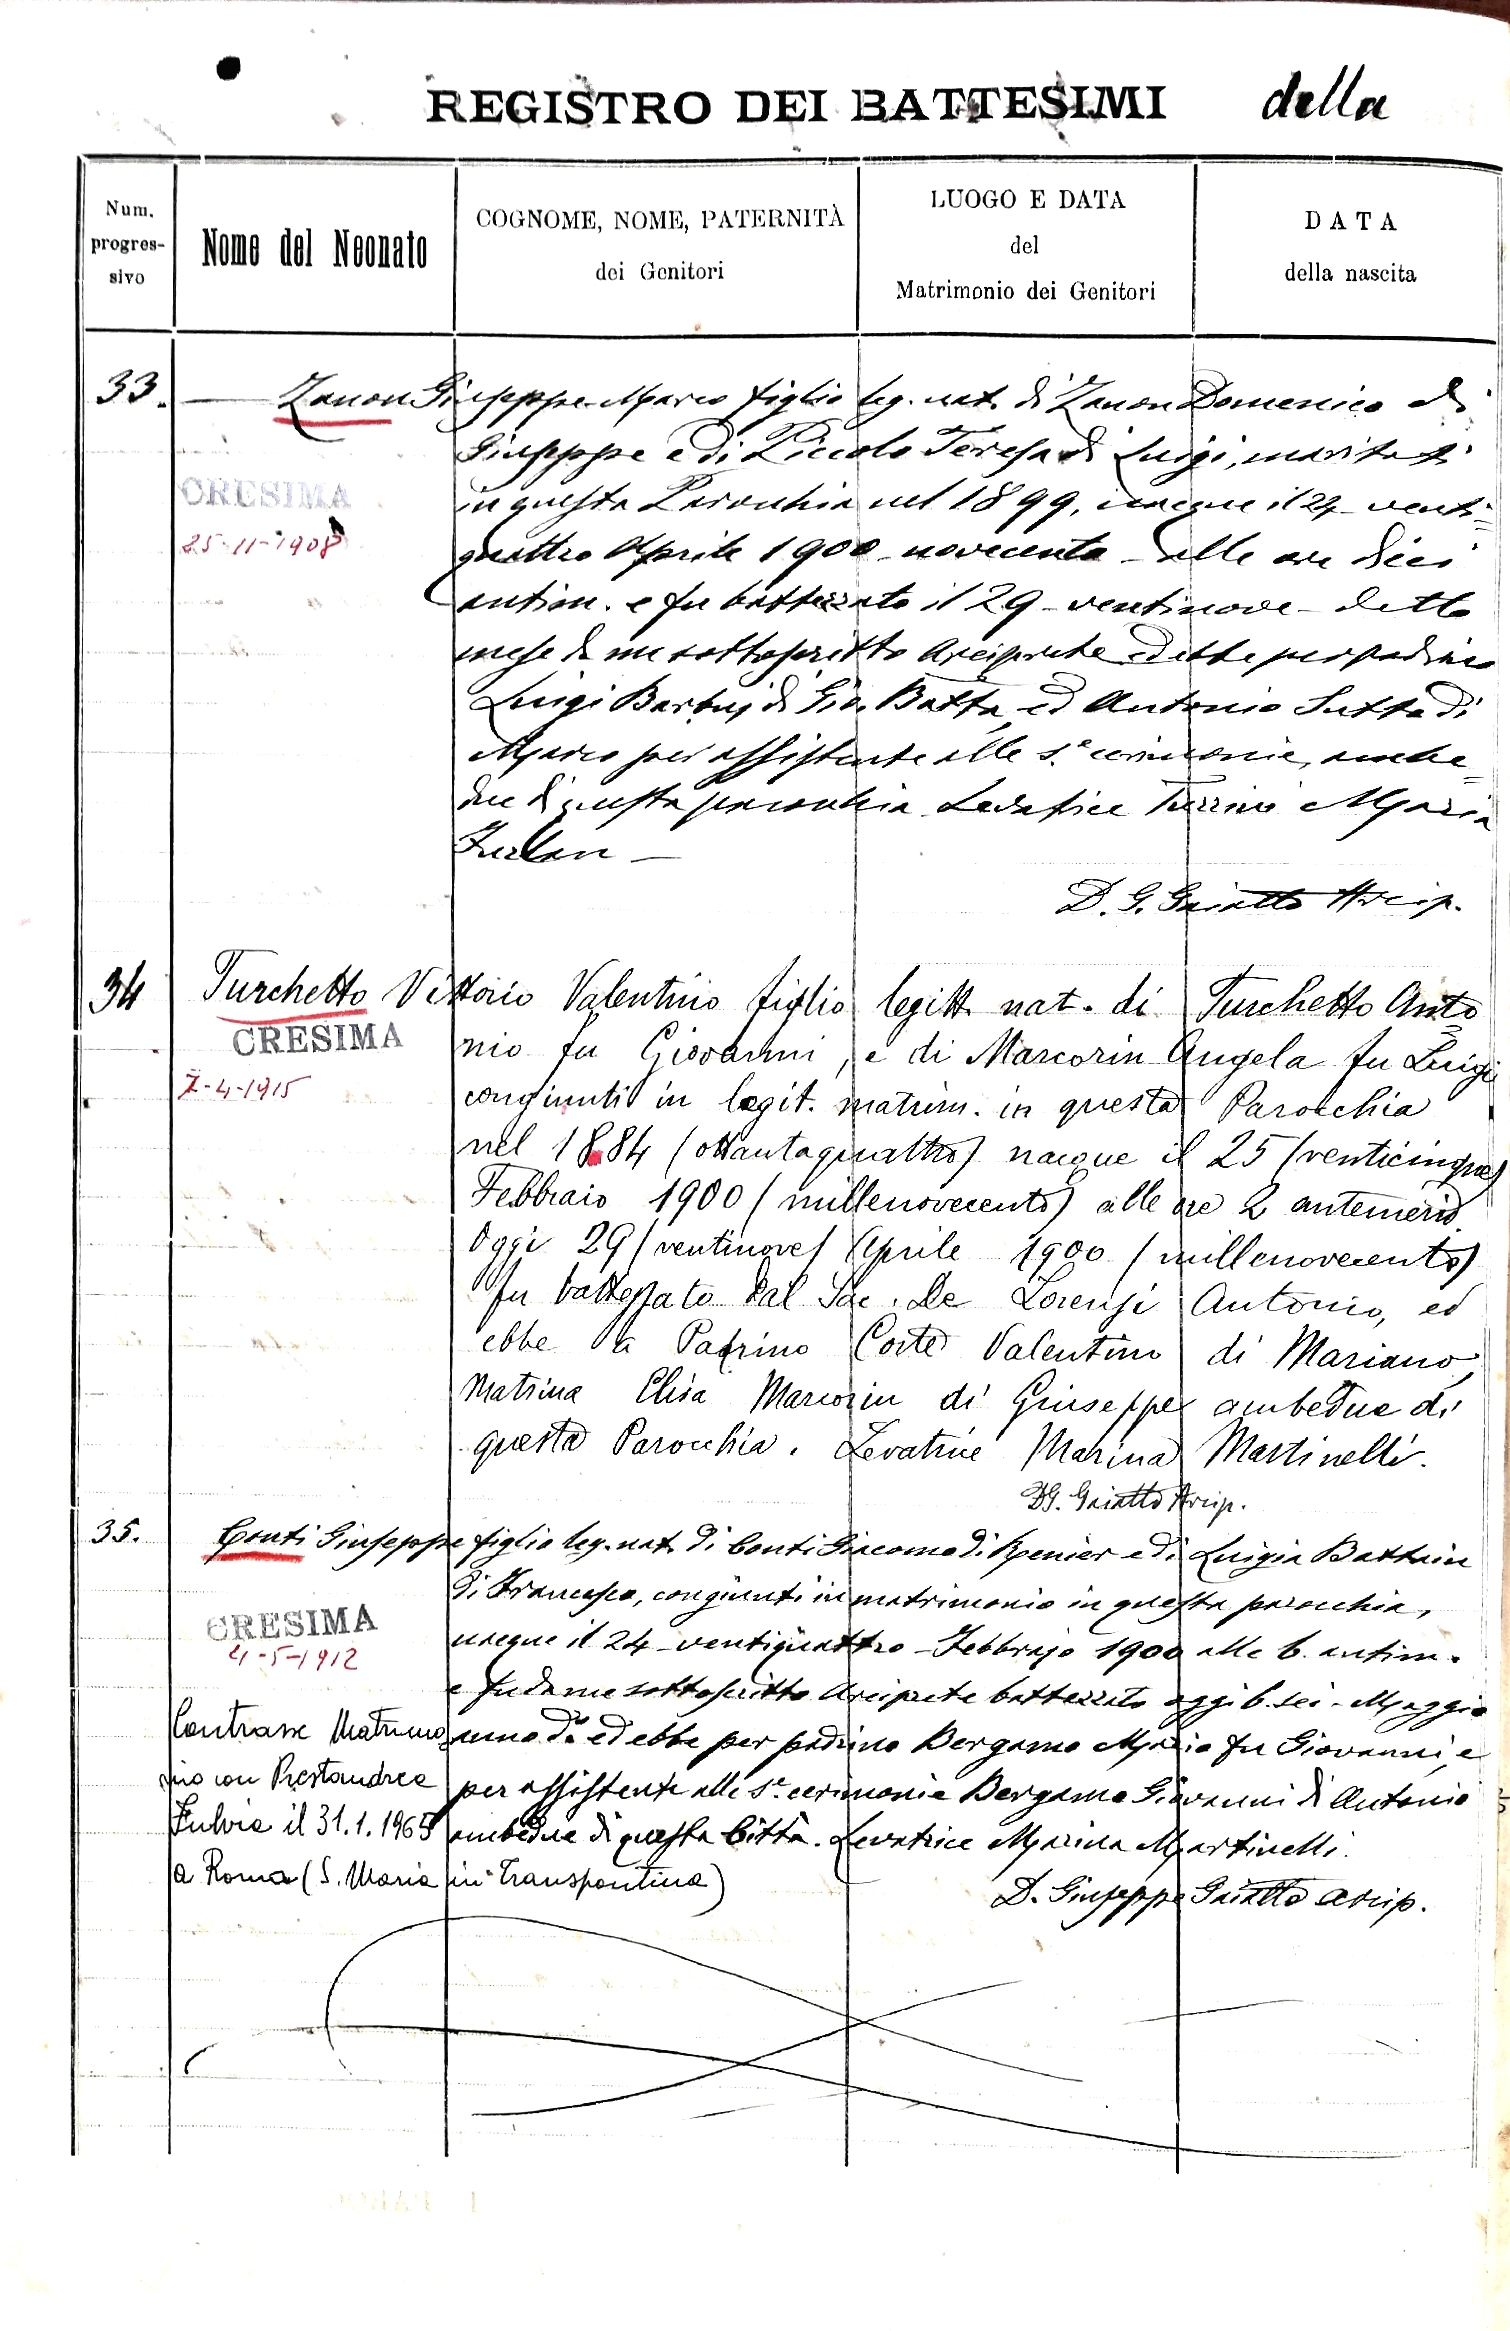 REGISTRO DEI BATTESIMI della
Num. progres- sivo
Nome del Neonato
COGNOME, NOME, PATERNITÀ
dei Genitori
LUOGO E DATA
del
Matrimonio dei Genitori
DATA
della nascita
33. Zanon Giuseppe Marco figlio leg. nat. di Zanon Domenico di
Giuseppe e di Piccolo Teresa di Luigi, maritati
CRESIMA
in questa Parochia nel 1899, nacque il 24 - venti=
25-11-1908
quattro Aprile 1900 novecento - alle ore dieci
antim. e fu battezzato il 29 - ventinove - detto
mese da me sottoscritto Arciprete ed ebbe per padrino
Luigi di Gio. Batta ed Antonio Sutto di
Marco per assistente alle s.e cerimonie, ambe=
due di questa parochia. Levatrice Turrini Maria
Furlan -
D. G. Gaiatto Arcip.
34 Turchetto Vittorio Valentino figlio legitt. nat. di Turchetto Anto
CRESIMA
nio fu Giovanni, e di Marcorin Angela fu Luigi
7-4-1915
congiunti in legit. matrim. in questa Parocchia
nel 1884 (ottantaquattro) nacque il 25 (venticinque)
Febbraio 1900 (millenovecento) alle ore 2 antemerid.
Oggi 29 (ventinove) Aprile 1900 (millenovecento)
fu battezzato dal Sac. De Lorenzi Antonio, ed
ebbe a Padrino Corte Valentino di Mariano,
Matrina Elisa Marcorin di Giuseppe ambedue di
questa Parocchia. Levatrice Marina Martinelli.
D G. Gaiatto Arcip.
35. Conti Giuseppe figlio leg. nat. di Conti Giacomo di Renier e di Luigia Battain
di Francesco, congiunti in matrimonio in questa parocchia,
CRESIMA
nacque il 24 - ventiquattro - Febbrajo 1900 alle 6. antim.
4-5-1912
e fu da me sottoscritto Arciprete battezzato oggi 6. sei - Maggio
anno do ed ebbe per padrino Bergamo Mario fu Giovanni, e
per assistente alle s.e cerimonie Bergamo Giovanni di Antonio
ambedue di questa Città. Levatrice Marina Martinelli.
Contrasse Matrimo
nio con Prestandrea
Fulvia il 31.1.1965
a Roma (S. Maria in Transpontina)
D. Giuseppe Gaiatto arcip.